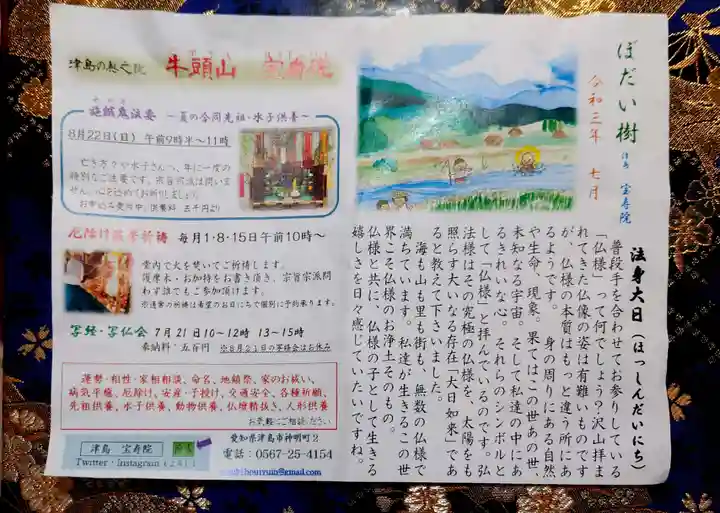 ぼだい樹
津島 宝寿院
令和三年 七月
法身大日(ほっしんだいにち)
普段手を合わせてお参りしている
「仏様」って何でしょう?沢山拝ま
れてきた仏像の姿は有難いものです
が、仏様の本質はもっと違う所にあ
るようです。 身の周りにある自然
や生命、現象。果てはこの世あの世、
未知なる宇宙。そして私達の中にあ
るきれいな心。それらのシンボルと
して「仏様」と拝んでいるのです。弘
法様はその究極の仏様を、太陽をも
照らす大いなる存在「大日如来」であ
ると教えて下さいました。
海も山も里も街も、無数の仏様で
満ちています。私達が生きるこの世
界こそ仏様のお浄土そのもの。
仏様と共に、仏様の子として生きる
嬉しさを日々感じていたいですね。
津島の奥之院 牛頭山
施餓鬼法要 ~夏の合同先祖・水子供養~
8月22日(日) 午前9時半~11時
亡き方々や水子さんへ、年に一度の
特別なご法要です。宗旨宗派は問いま
せん。心を込めてお祈りしましょう。
お申込み受付中。供養料 五千円より
厄除け護摩祈祷 毎月1・8・15日午前10時~
堂内で火を焚いてご祈祷します。
護摩木・お加持をお書き頂き、宗旨宗派問
わず誰でもご参加頂けます。
※通常の祈祷は希望のお日にちで個別に予約承ります。
写経・写仏会 7月21日10~12時 13~15時
奉納料:五百円 ※8月21日の写経会はお休み
運勢・相性・家相相談、命名、地鎮祭、家のお祓い、
病気平癒、厄除け、安産・子授け、交通安全、各種祈願、
先祖供養、水子供養、動物供養、仏壇精抜き、人形供養
お気軽にご相談ください
津島 宝寿院
Twitter・Instagram
愛知県津島市神明町2
電話:0567-25-4154